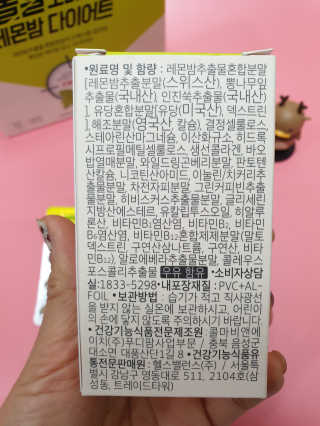 레몬밤 다이어트
•원료명 및 함량 : 레몬밤추출물혼합분말
[레몬밤추출분말(스위스산), 뽕나무잎
추출물(국내산), 인진쑥추출물(국내산)
], 유당혼합분말[유당(미국산), 덱스트린
], 해조분말(영국산, 칼슘), 결정셀룰로스,
스테아린산마그네슘, 이산화규소, 히드록
시프로필메틸셀룰로스, 생선콜라겐, 바오
밥열매분말, 와일드링고베리분말, 판토텐
산칼슘, 니코틴산아미드, 이눌린/치커리추
출물분말, 차전자피분말, 그린커피빈추출
물분말, 히비스커스추출물분말, 글리세린
지방산에스테르, 유칼립투스오일, 히알루
론산, 비타민B₁염산염, 비타민B₂, 비타민
B₆염산염, 비타민B₁₂혼합제제분말(말토
덱스트린, 구연산삼나트륨, 구연산, 비타민
B₁₂), 알로에베라추출물분말, 콜레우스
포스콜리추출물 우유 함유 •소비자상담
실:1833-5298•내포장재질 : PVC+AL-
FOIL •보관방법 : 습기가 적고 직사광선
을 받지 않는 실온에 보관하시고, 어린이
의 손에 닿지 않도록 주의하시기 바랍니다.
•건강기능식품전문제조원 : 콜마비앤에
이치(주)푸디팜사업부문 / 충북 음성군
대소면 대풍산단1길 8 •건강기능식품유
통전문판매원 : 헬스밸런스(주) / 서울특
별시 강남구 영동대로 511, 2104호(삼
성동, 트레이드타워)